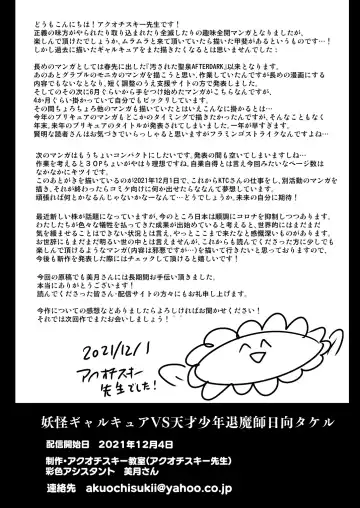 どうもこんにちは！アクオチスキー先生です！
正義の味方がやられたり取り込まれたり全滅したりの趣味全開マンガとなりましたが、
楽しんで頂けてでしょうか、ムラムラと来て頂いていたら描いた甲斐があるというものです…！
しかし過去に描いたギャルキュアをまた描きたくなるとは思いませんでした：

長めのマンガとしては春先に出した『汚された聖泉AFTERDARK』以来となります。
あのあとグラブルのモニカのマンガを描こうと思い、作業していたんですが長めの漫画にする
内容でもないなとなり、短く調整のうえ支援サイトの方で発表しました。
そしてのその次に6月ぐらいから手をつけ始めたマンガがこちらなんですが、
4か月ぐらい掛かっていて自分でもビックリしています。
その間ちょろちょろ他のマンガも描いていたとはいえこんなに掛かるとは…
今年のプリキュアのマンガとかこのタイミングで描きたかったんですが、そんなこともなく
年末、来年のプリキュアのタイトルが発表されてしまいました、一年が早すぎます。
賢明な読者さんはお気づきでいらっしゃると思いますがフラミンゴストライクなんですよね…

次のマンガはもうちょいコンパクトにしたいです、発表の間も空いてしまいますしね…
作業を考えると３０Ｐちょいがやはり理想ですね、自業自得とは言え今回みたいなページ数は
なかなかにキツイです。
このあとがきを描いているのが2021年12月1日で、これからKTCさんの仕事をし、別活動のマンガを
描き、それが終わったらコミケ向けに何か出せたらななんて夢想しています。
頑張れば何とかなるんじゃないかなーなんて…どうでしょうか、未来の自分に期待！

最近新しい株が話題になっていますが、今のところ日本は順調にコロナを抑制しつつあります。
わたしたちが色々な犠牲を払ってきた成果が出始めていると考えると、世界的にはまだまだ
気を緩ませることはできない状況とは言え、やっとここまで来たなと感慨深いものがあります。
お世辞にもまだまだ明るい世の中とは言えませんが、これからも読んでくださった方に少しでも
楽しんで頂けるようなマンガ（内容は邪悪ですが…）を描いて行きたいと思っておりますので、
今後も新作を発表した際にはチェックして頂けると嬉しいです！

今回の原稿でも美月さんには長期間お手伝い頂きました、
本当にありがとうございます！
読んでくださった皆さん・配信サイトの方々にもお礼申し上げます。

今作についての感想などありましたらよろしければお聞かせください！
それでは次回作でまたお会いしましょう！｀｀
2021/12/1
アクオチスキー
先生でした！
妖怪ギャルキュアVS天才少年退魔師日向タケル
配信開始日　2021年12月4日
制作・アクオチスキー教室（アクオチスキー先生）
彩色アシスタント　美月さん
連絡先　akuochisukii@yahoo.co.jp